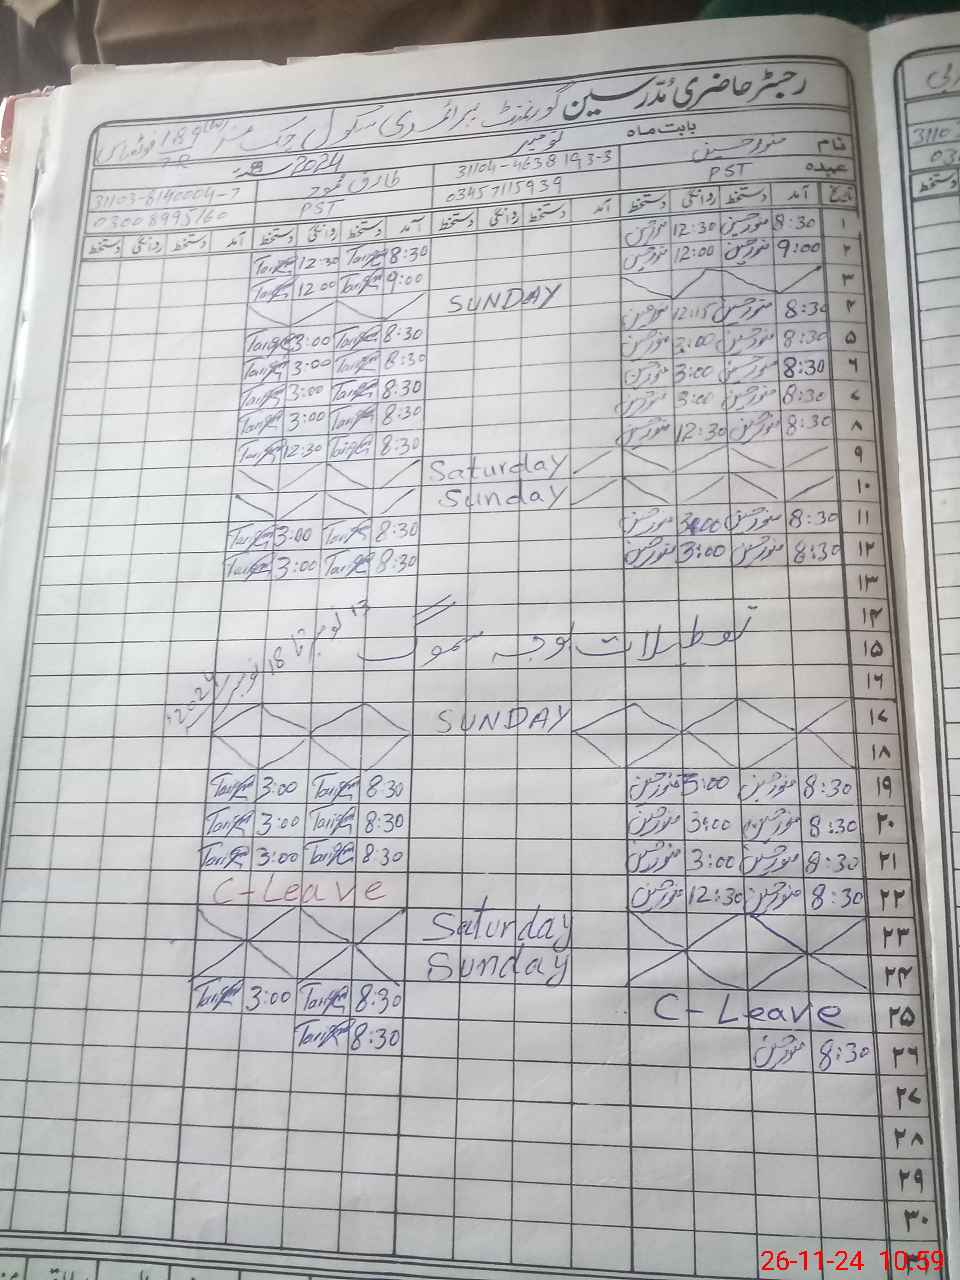 رجسٹر حاضری مدرسین گورنمنٹ پرائمری سکول چک نمبر 189
نام منور حسین بابت ماہ نومبر 2024
31104-4638193-3 طارق محمود 31103-8140004-7
عہدہ PST 03457115939 PST 03008995760
تاریخ آمد دستخط روانگی دستخط آمد دستخط روانگی دستخط آمد دستخط روانگی دستخط آمد دستخط روانگی دستخط
۱ 8:30 منور حسین 12:30 منور حسین 8:30 Tariq 12:30 Tariq
۲ 9:00 منور حسین 12:00 منور حسین 9:00 Tariq 12:00 Tariq
۳ SUNDAY
۴ 8:30 منور حسین 12:15 منور حسین 8:30 Tariq 3:00 Tariq
۵ 8:30 منور حسین 3:00 منور حسین 8:30 Tariq 3:00 Tariq
۶ 8:30 منور حسین 3:00 منور حسین 8:30 Tariq 3:00 Tariq
۷ 8:30 منور حسین 3:00 منور حسین 8:30 Tariq 3:00 Tariq
۸ 8:30 منور حسین 12:30 منور حسین 8:30 Tariq 12:30 Tariq
۹ Saturday
۱۰ Sunday
۱۱ 8:30 منور حسین 3:00 منور حسین 8:30 Tariq 3:00 Tariq
۱۲ 8:30 منور حسین 3:00 منور حسین 8:30 Tariq 3:00 Tariq
۱۳
۱۴
۱۵ تعطیلات بوجہ سموگ 13 نومبر تا 18 نومبر 2024
۱۶
۱۷ SUNDAY
۱۸
۱۹ 8:30 منور حسین 3:00 منور حسین 8:30 Tariq 3:00 Tariq
۲۰ 8:30 منور حسین 3:00 منور حسین 8:30 Tariq 3:00 Tariq
۲۱ 8:30 منور حسین 3:00 منور حسین 8:30 Tariq 3:00 Tariq
۲۲ 8:30 منور حسین 12:30 منور حسین C-Leave
۲۳ Saturday
۲۴ Sunday
۲۵ C-Leave 8:30 Tariq 3:00 Tariq
۲۶ 8:30 منور حسین 8:30 Tariq
۲۷
۲۸
۲۹
۳۰
26-11-24 10:59